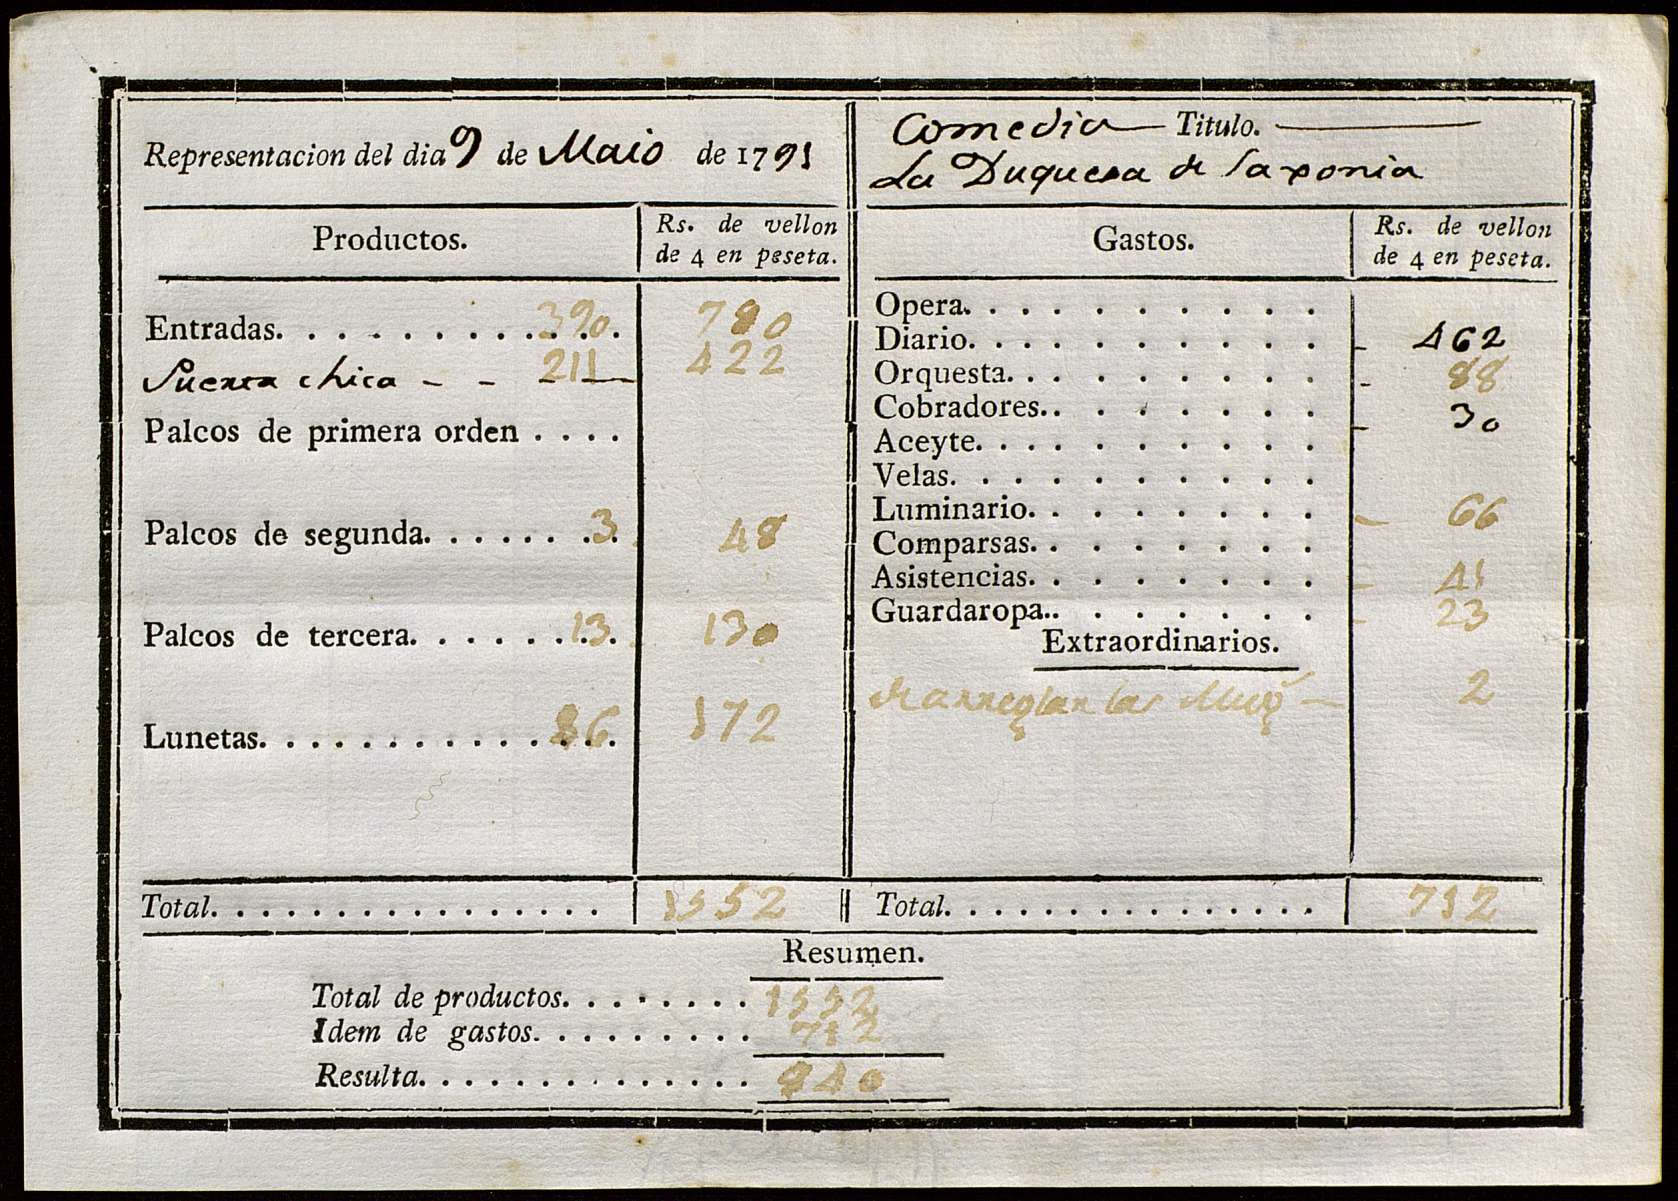 Representacion del dia 9 de Maio de 1791
Productos. Rs. de vellon
de 4 en peseta.
Entradas. 390 780
Puerta chica - - 211 422
Palcos de primera orden
Palcos de segunda. 3 48
Palcos de tercera. 13 130
Lunetas. 86 172
Total. 1552
Comedia Titulo.
La Duquesa de Saxonia
Gastos. Rs. de vellon
de 4 en peseta.
Opera.
Diario. 462
Orquesta. 88
Cobradores. 30
Aceyte.
Velas.
Luminario. 66
Comparsas.
Asistencias. 41
Guardaropa. 23
Extraordinarios.
de arreglar las 2
Total. 712
Resumen.
Total de productos. 1552
Idem de gastos. 712
Resulta. 840